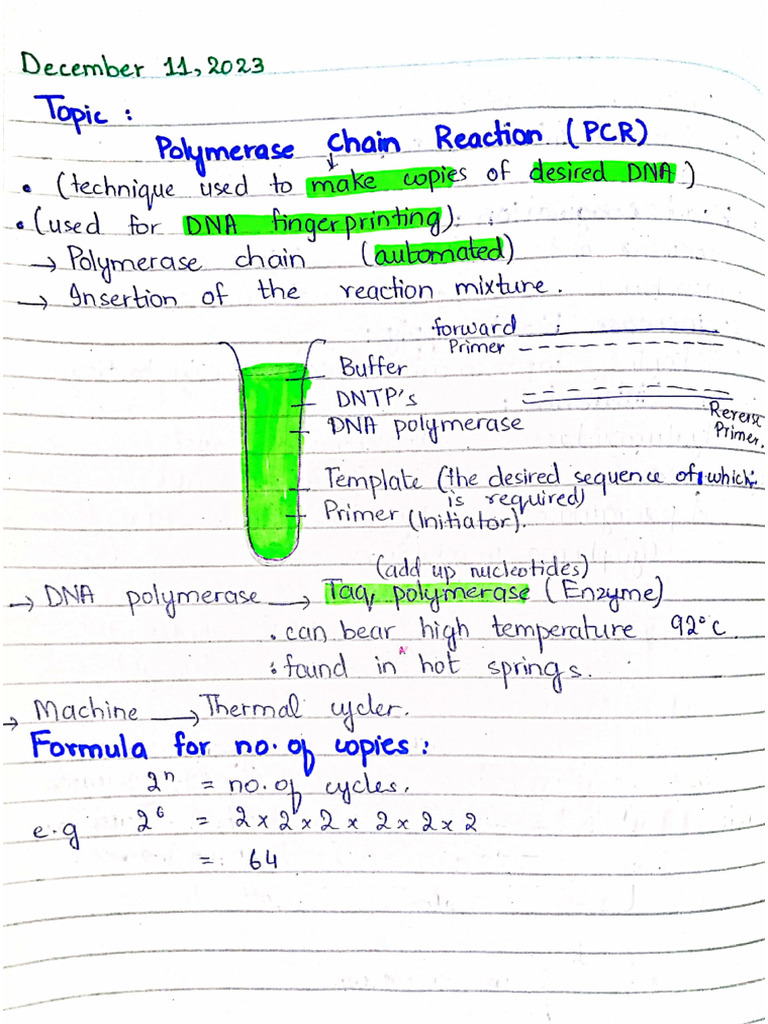 December 11, 2023
Topic :
Polymerase Chain Reaction (PCR)
• (technique used to make copies of desired DNA)
• (used for DNA fingerprinting).
→ Polymerase chain (automated)
→ Insertion of the reaction mixture.
forward
Primer
Buffer
DNTP's
Reverse
Primer.
DNA polymerase
Template (the desired sequence of which
is required)
Primer (Initiator).
(add up nucleotides)
→ DNA polymerase → Taq polymerase (Enzyme)
. can bear high temperature 92°C
: found in hot springs.
→ Machine → Thermal cycler.
Formula for no. of copies :
2ⁿ = no. of cycles.
e.g 2⁶ = 2 x 2 x 2 x 2 x 2 x 2
= 64